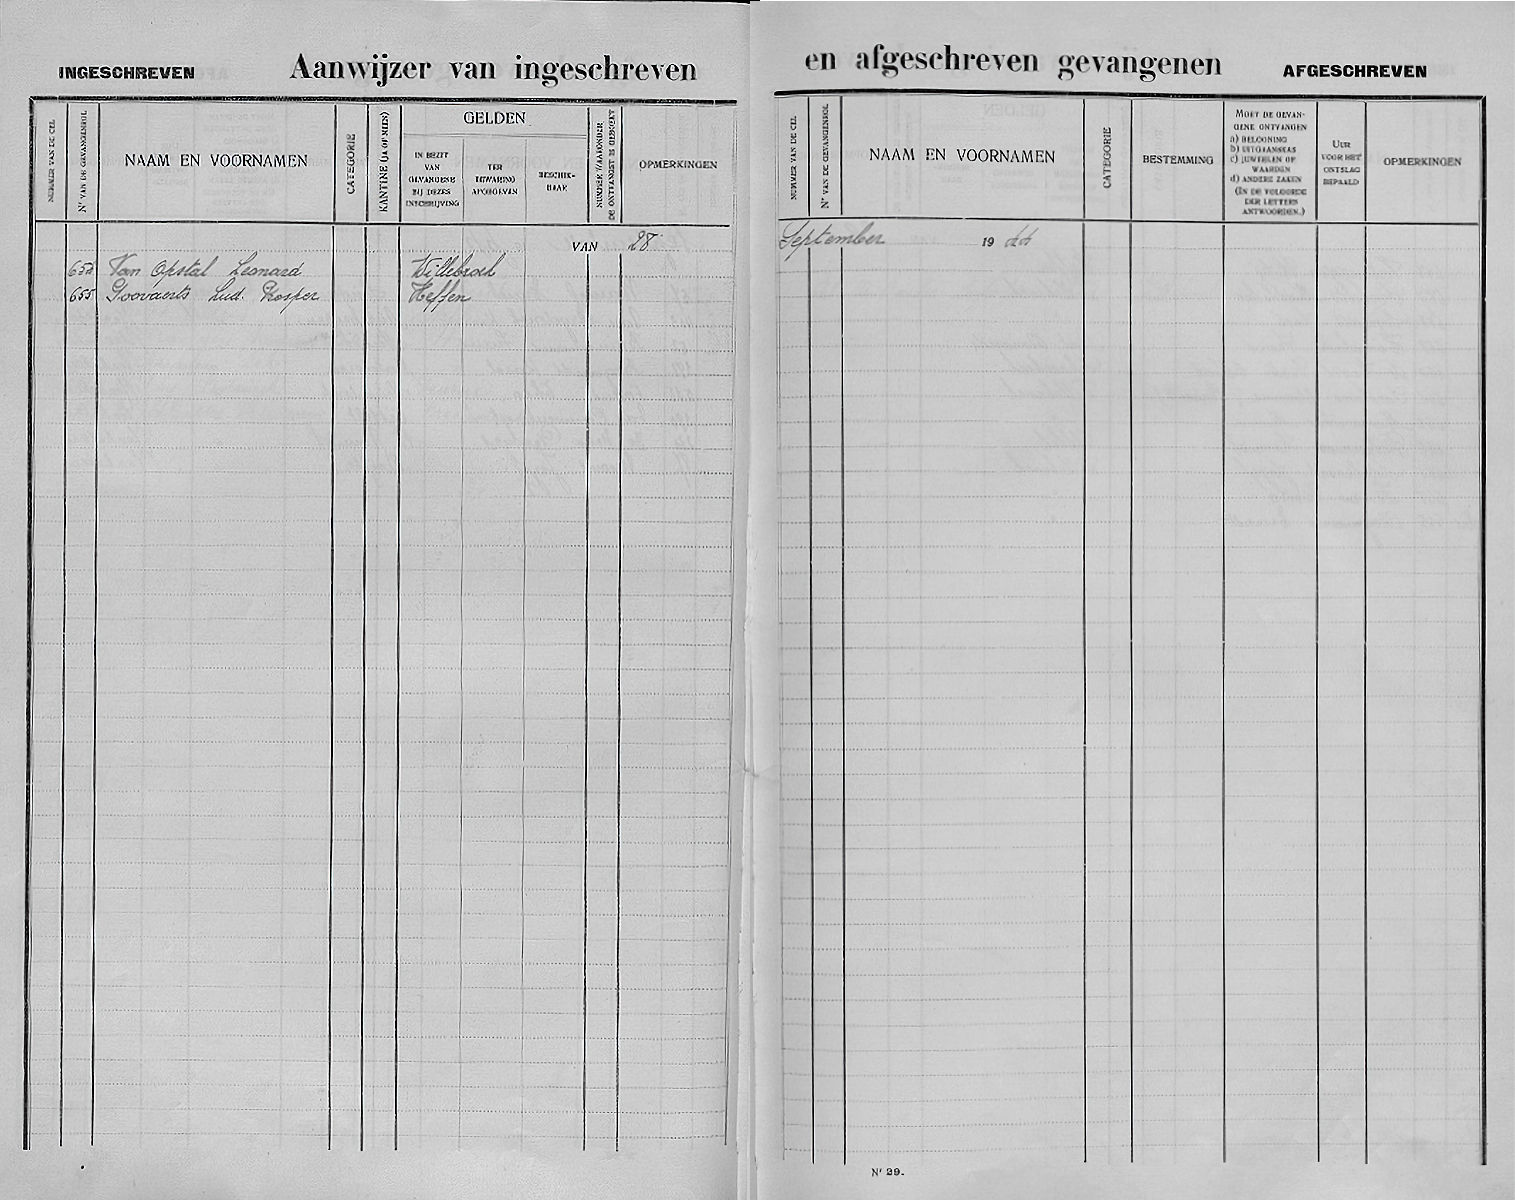 INGESCHREVEN Aanwijzer van ingeschreven en afgeschreven gevangenen AFGESCHREVEN
NUMMER VAN DE CEL
Nr VAN DE GEVANGENROL
NAAM EN VOORNAMEN
CATEGORIE
KANTINE (JA OF NEEN)
GELDEN
IN BEZIT VAN GEVANGENE BIJ DEZES INSCHRIJVING
TER BEWARING AFGEGEVEN
BESCHIK-BAAR
NUMMER WAARONDER DE ONTVANGST IS GEBOEKT
OPMERKINGEN
NUMMER VAN DE CEL
Nr VAN DE GEVANGENROL
NAAM EN VOORNAMEN
CATEGORIE
BESTEMMING
MOET DE GEVAN-
GENE ONTVANGEN
a) BELOONING
b) UITGAANSKAS
c) JUWEELEN OF
WAARDEN
d) ANDERE ZAKEN
(IN DE VOLGORDE
DER LETTERS
ANTWOORDEN.)
UUR
VOOR HET
ONTSLAG
BEPAALD
OPMERKINGEN
VAN 28 September 19 44
654 Van Opstal Leonard Willebroek
655 Goovaerts Lud. Prosper Heffen
Nr 29.